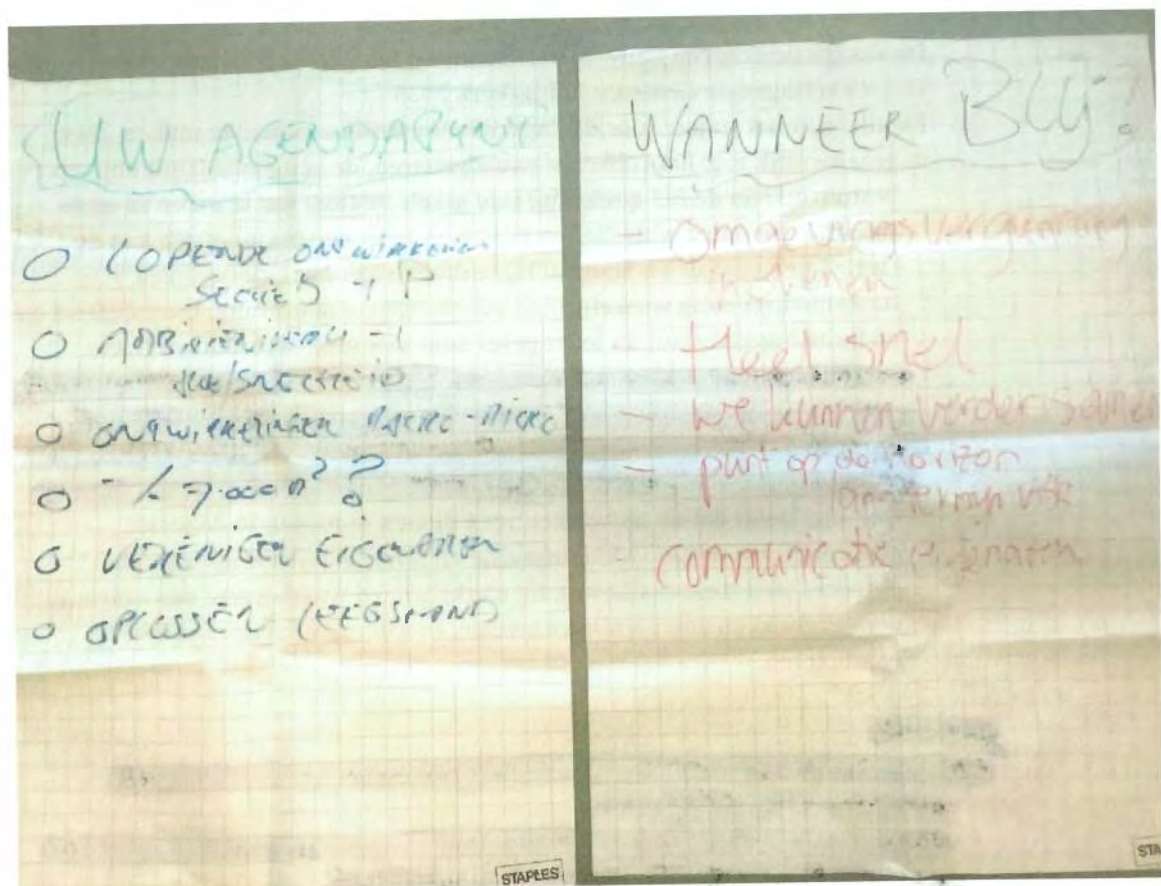 UW AGENDAPUNT
LOPENDE ONTWIKKELINGEN
ONTWIKKELINGEN MACRO-MICRO
7.000 m² ?
VERENIGEN EIGENAREN
OPLOSSEN (LEEGSTAND)
STAPLES
WANNEER BLIJ?
- Omgevingsvergunning
indienen
Heel snel
- we kunnen verder samen
- punt op de horizon
langetermijn visie
- communicatie eigenaren
STA